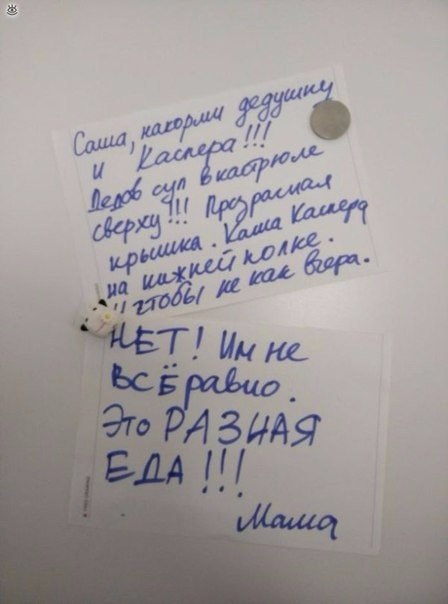 Саша, накорми дедушку
и Каспера!!!
Дедов суп в кастрюле
сверху!!! Прозрачная
крышка. Каша Каспера
на нижней полке.
И чтобы не как вчера.
НЕТ! Им не
ВСЁ равно.
Это РАЗНАЯ
ЕДА!!!
Мама